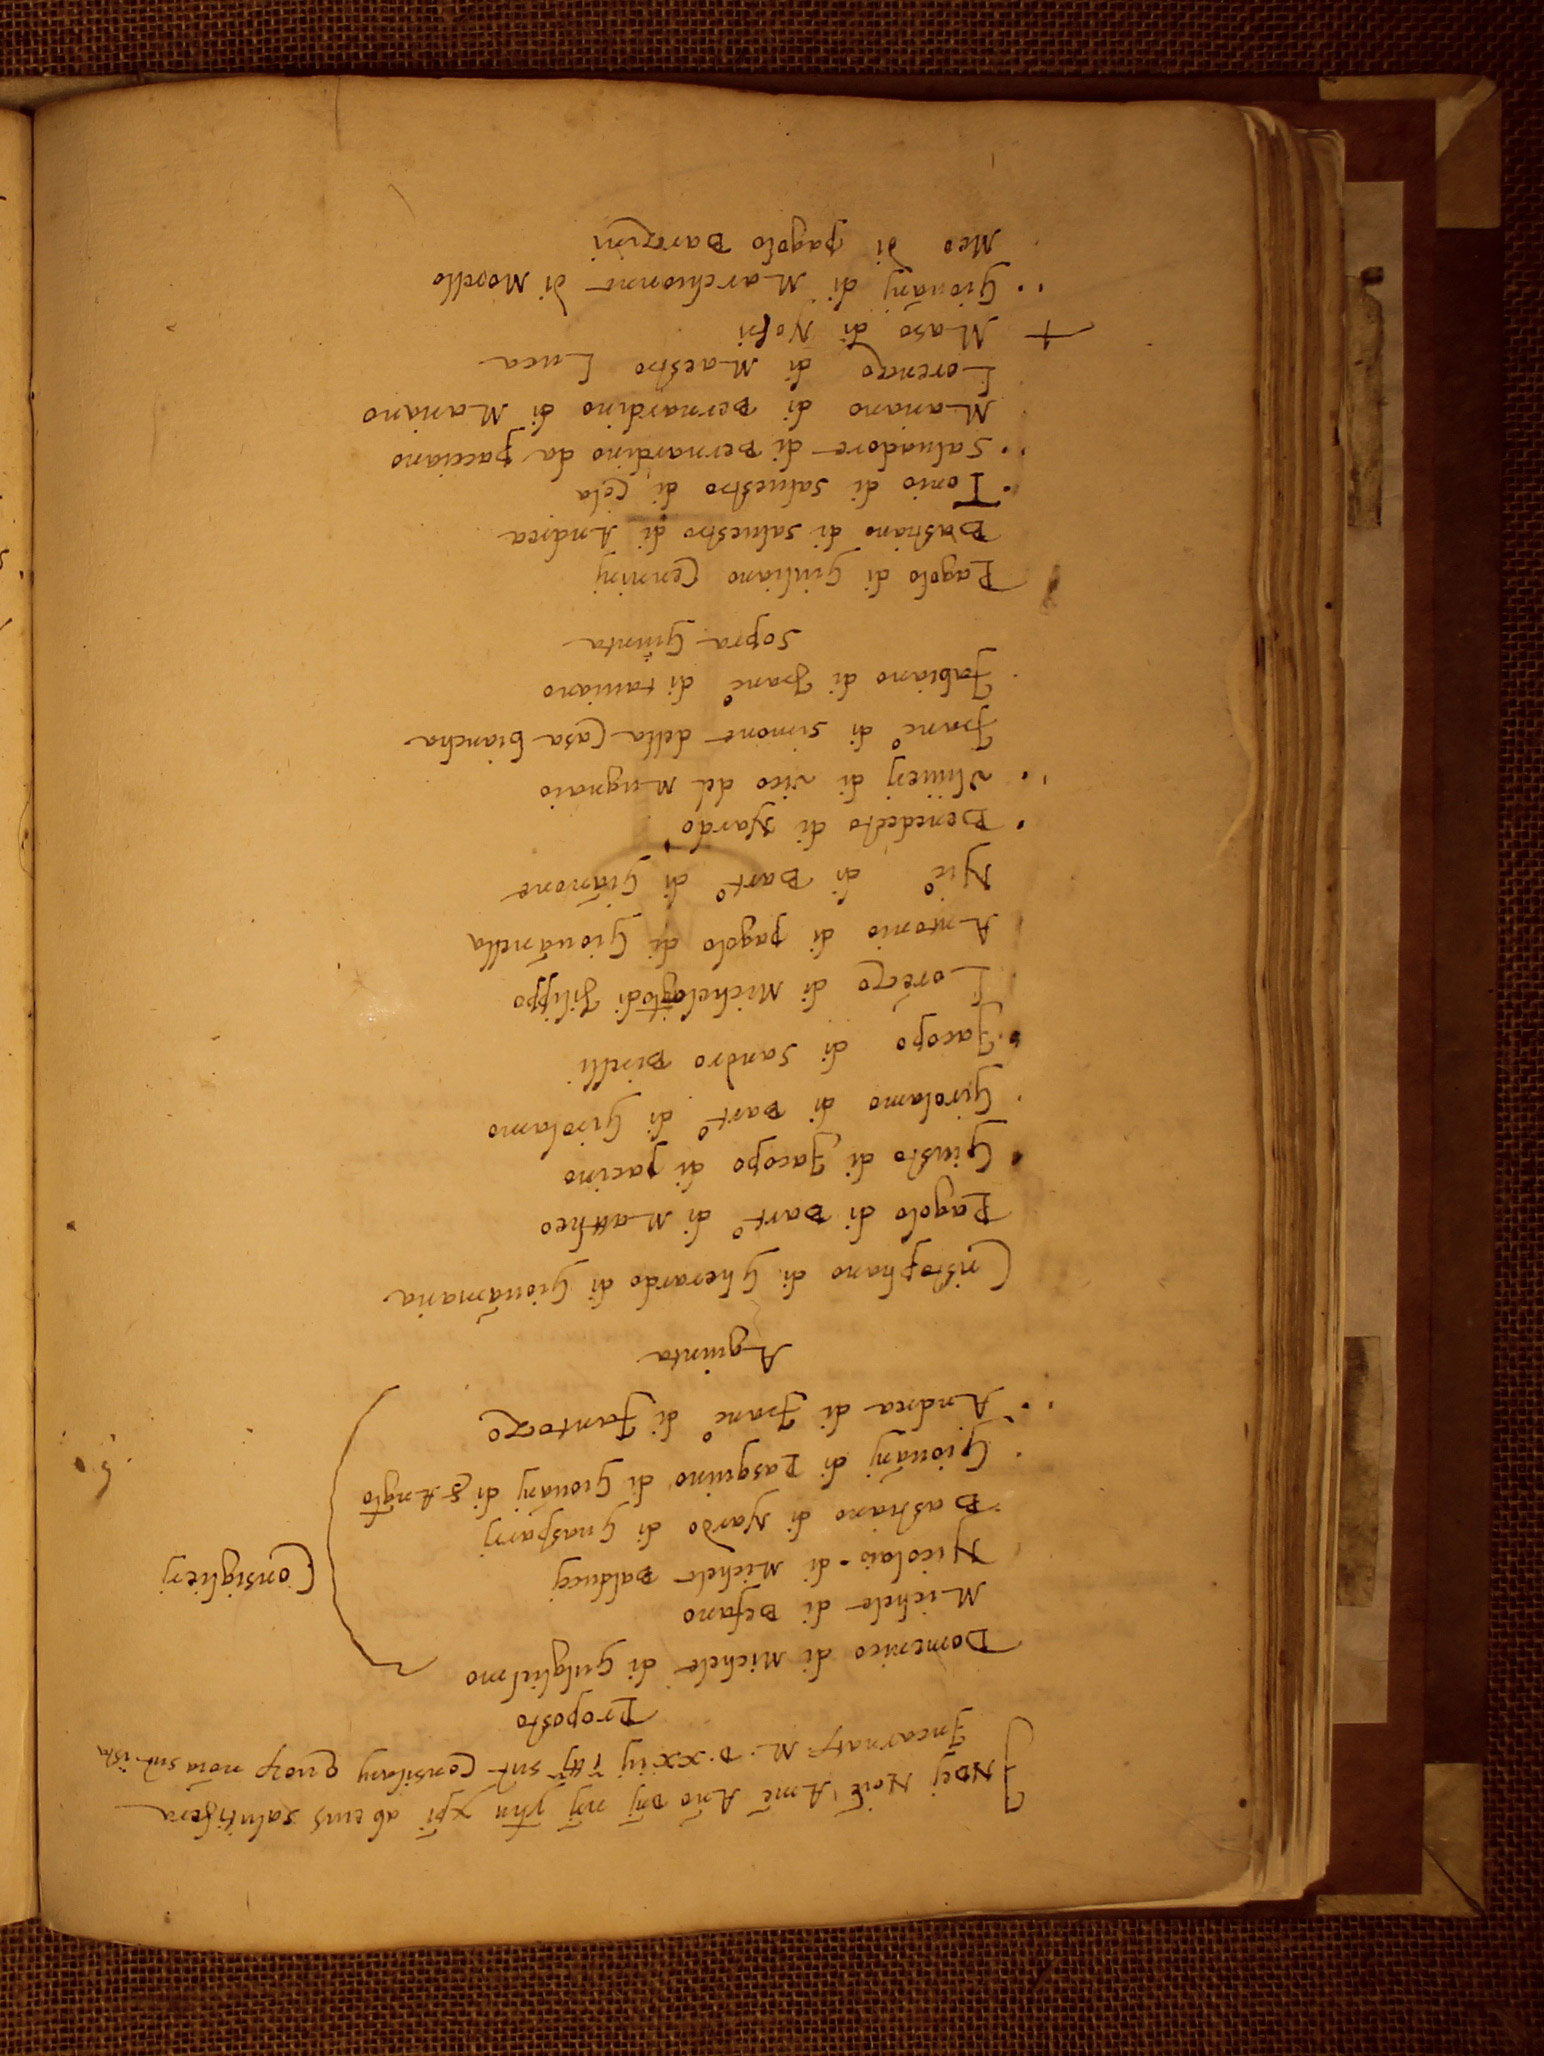 INDej Noīē Amē Año Dñj nrj yhū xpi ab eius salutifera
Incarnat: M.D.xxiij sūt Consiliarij quor nōia sūt ista
Proposto
Domenico di Michele di Guglielmo
Michele di Befano
Nicolaio di Michele Balducj
Bastiano di Nardo di Guasparj
Consiglierj
Giouānj di Pasquino di Giouānj di s Anglo
Andrea di Franco di Fantozo
Agiunta
Cristophano di Gherardo di Giouāmaria
Pagolo di Barto di Mattheo
Giusto di Jacopo di pacino
Girolamo di Barto di Girolamo
Jacopo di sandro Birelli
Lorēzo di Michelagto di filippo
Antonio di pagolo di Giouānella
Nico di Barto di Giānone
Benedecto di Nardo
Uliuerj di vico del Mugnaio
Franco di simone della Casa biancha
Fabiano di Franco di tauiano
Sopra Giūnta
Pagolo di Giuliano Cenninj
Bastiano di saluestro di Andrea
Tonio di saluestro di Cela
Saluadore di Bernardino da pacciano
Mariano di Bernardino di Mariano
Lorenzo di Maestro Luca
Maso di Nofri
Giouānj di Marchionne di Morello
Meo di pagolo Barzini